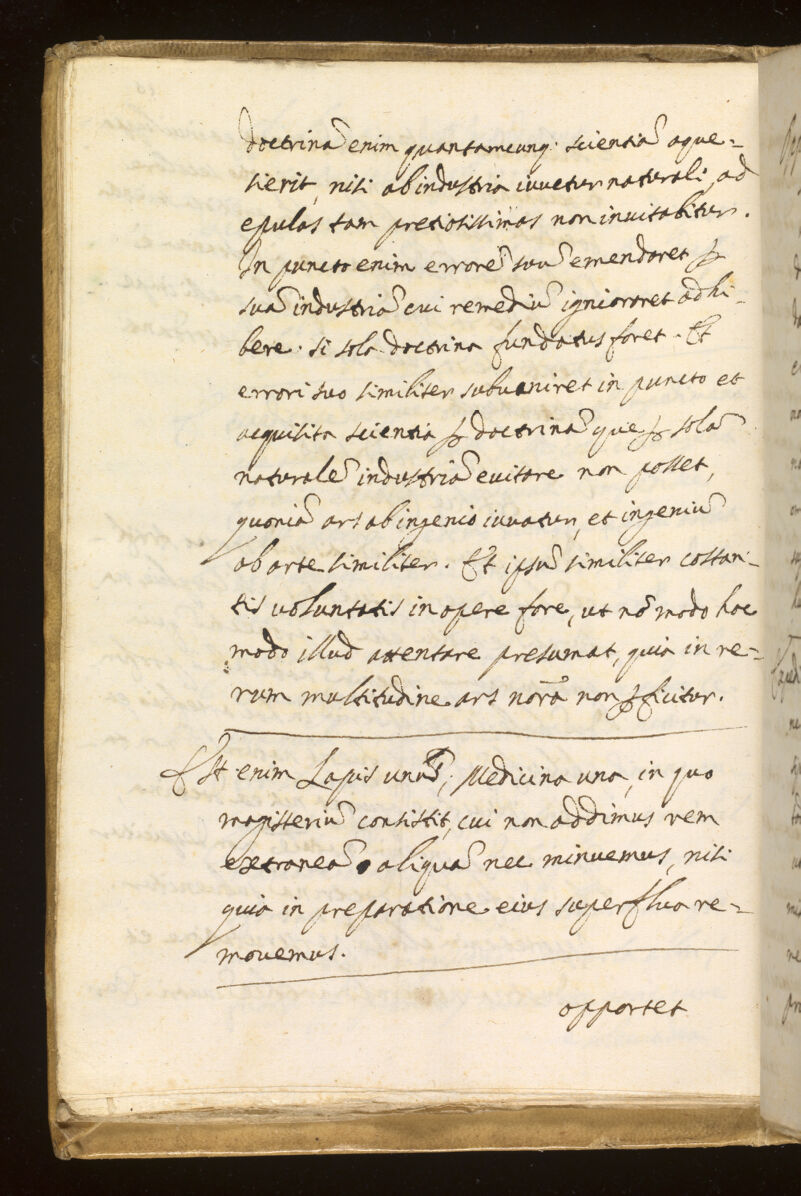 doctrinā enim quantamcunq; scientiā aque=
sierit, nisi ab industria iuuetur naturali, ad
epulas tam pretiosissimas non inuitabitur.
In puncto enim errorē suū emendaret ꝑ
suā industriā cui remediū ignioraret adhi-
bere. si sola doctrina fundatus foret. Et
errori suo similiter subueniret in puncto et
acquisita scientia ꝑ doctrinā que ꝑ solā
naturalē industriā euitare non posset,
quoniā ars ab ingenio iuuatur, et ingeniū
ab arte similiter. Et ipsū similiter costan-
tis voluntatis in opere fore, ut nō modo hoc
modo illud attentare presumat, quia in re=
rum multitudine ars nora non ꝑficitur.
Est enim Lapis unus, Medicina una, in quo
magisteriū consistit, cui non addimus rem
extraneā aliquā nec minuemus, nisi
quia in preparatione eius superflua re=
mouemus.
opportet